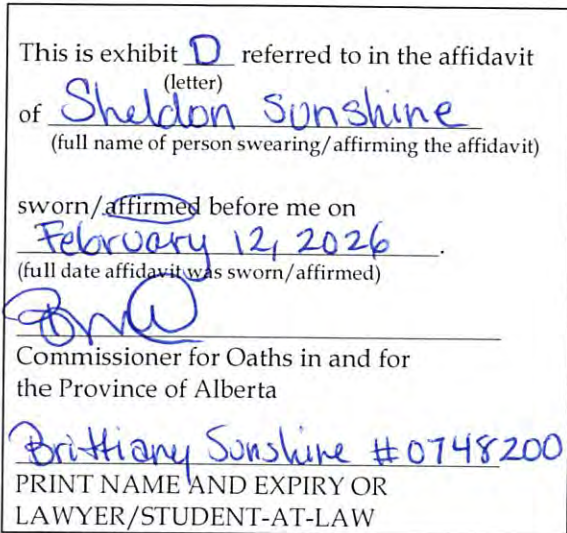 This is exhibit D referred to in the affidavit
(letter)
of Sheldon Sunshine
(full name of person swearing/affirming the affidavit)
sworn/affirmed before me on
February 12, 2026.
(full date affidavit was sworn/affirmed)
Commissioner for Oaths in and for
the Province of Alberta
Brittiany Sunshine #0748200
PRINT NAME AND EXPIRY OR
LAWYER/STUDENT-AT-LAW